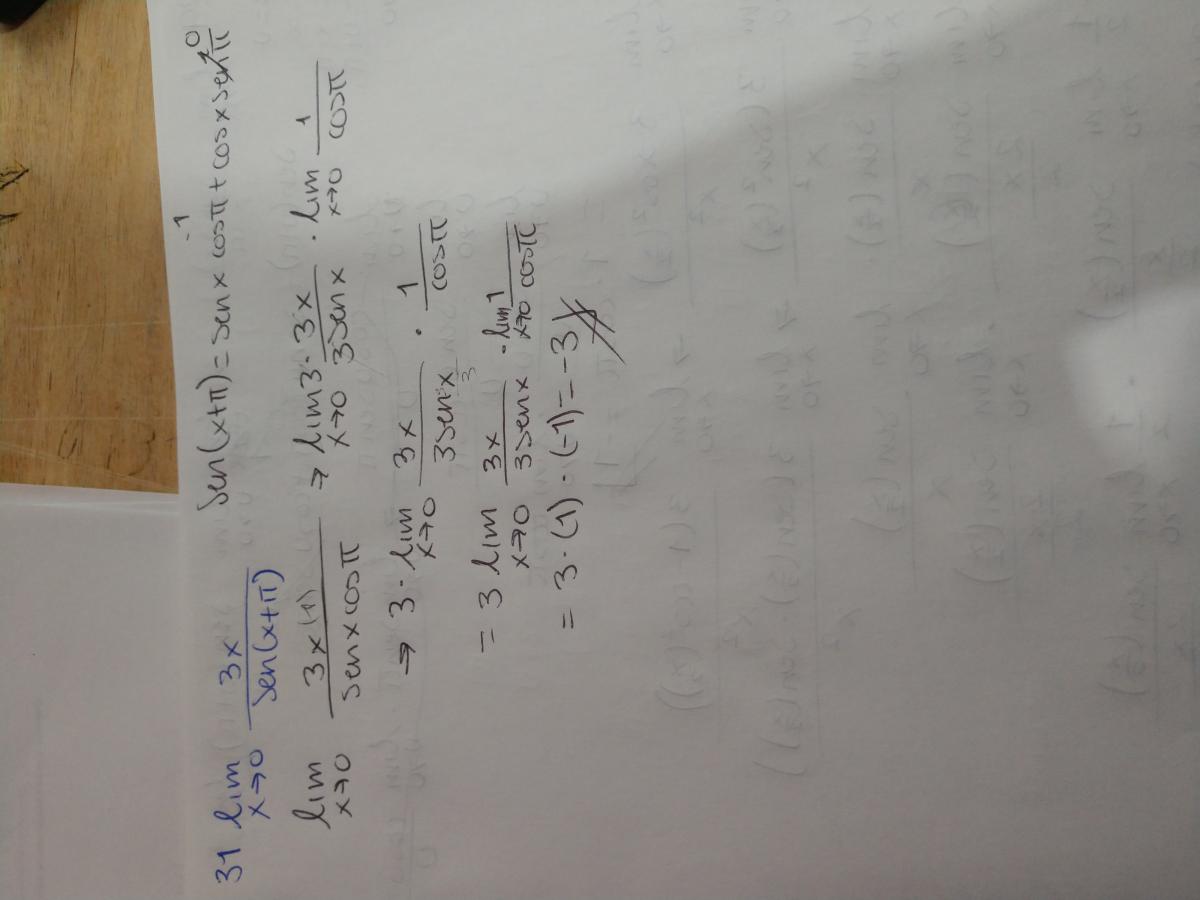 31 lim x→0 3x / sen(x+π)    sen(x+π) = sen x cos π + cos x sen π   -1   0
lim x→0 3x(1) / sen x cos π → lim x→0 3 · 3x / 3sen x · lim x→0 1 / cos π
→ 3 · lim x→0 3x / 3sen x · 1 / cos π
= 3 lim x→0 3x / 3sen x · lim x→0 1 / cos π
= 3 · (1) · (-1) = -3